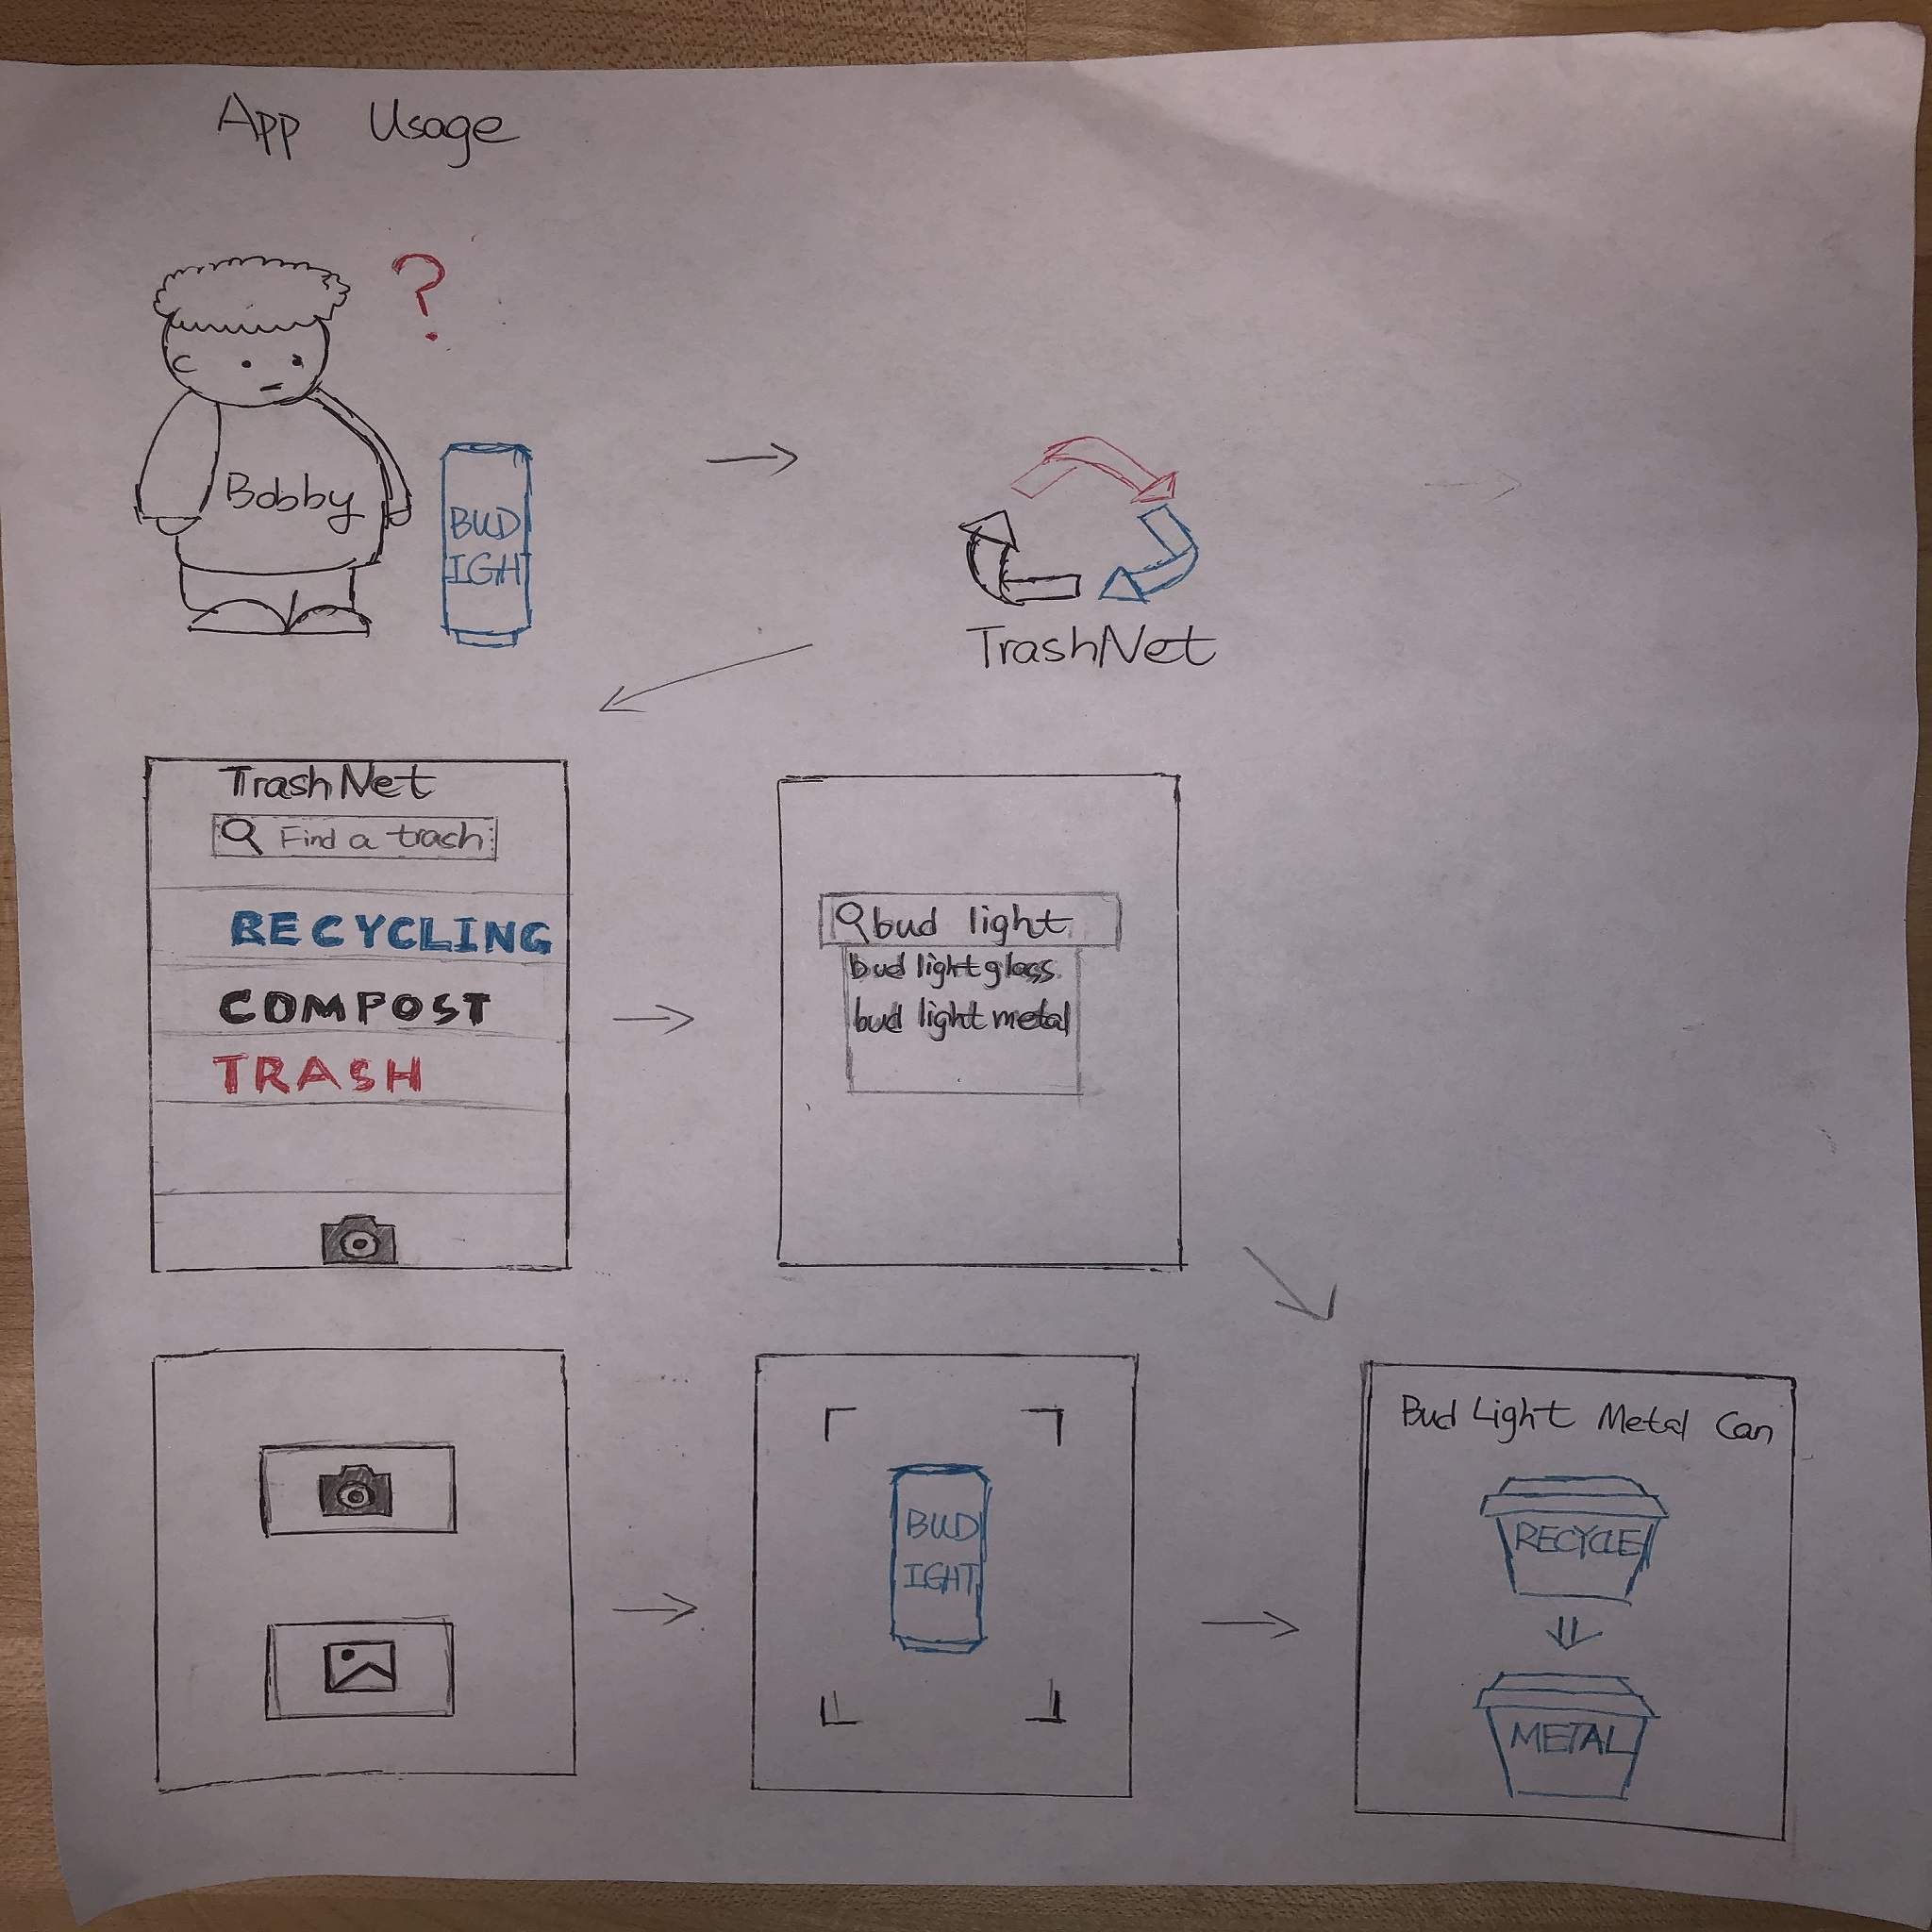 App Usage
?
Bobby
BUD
IGH
TrashNet
TrashNet
Find a trash
RECYCLING
COMPOST
TRASH
bud light
bud light glass
bud light metal
BUD
IGHT
Bud Light Metal Can
RECYCLE
METAL